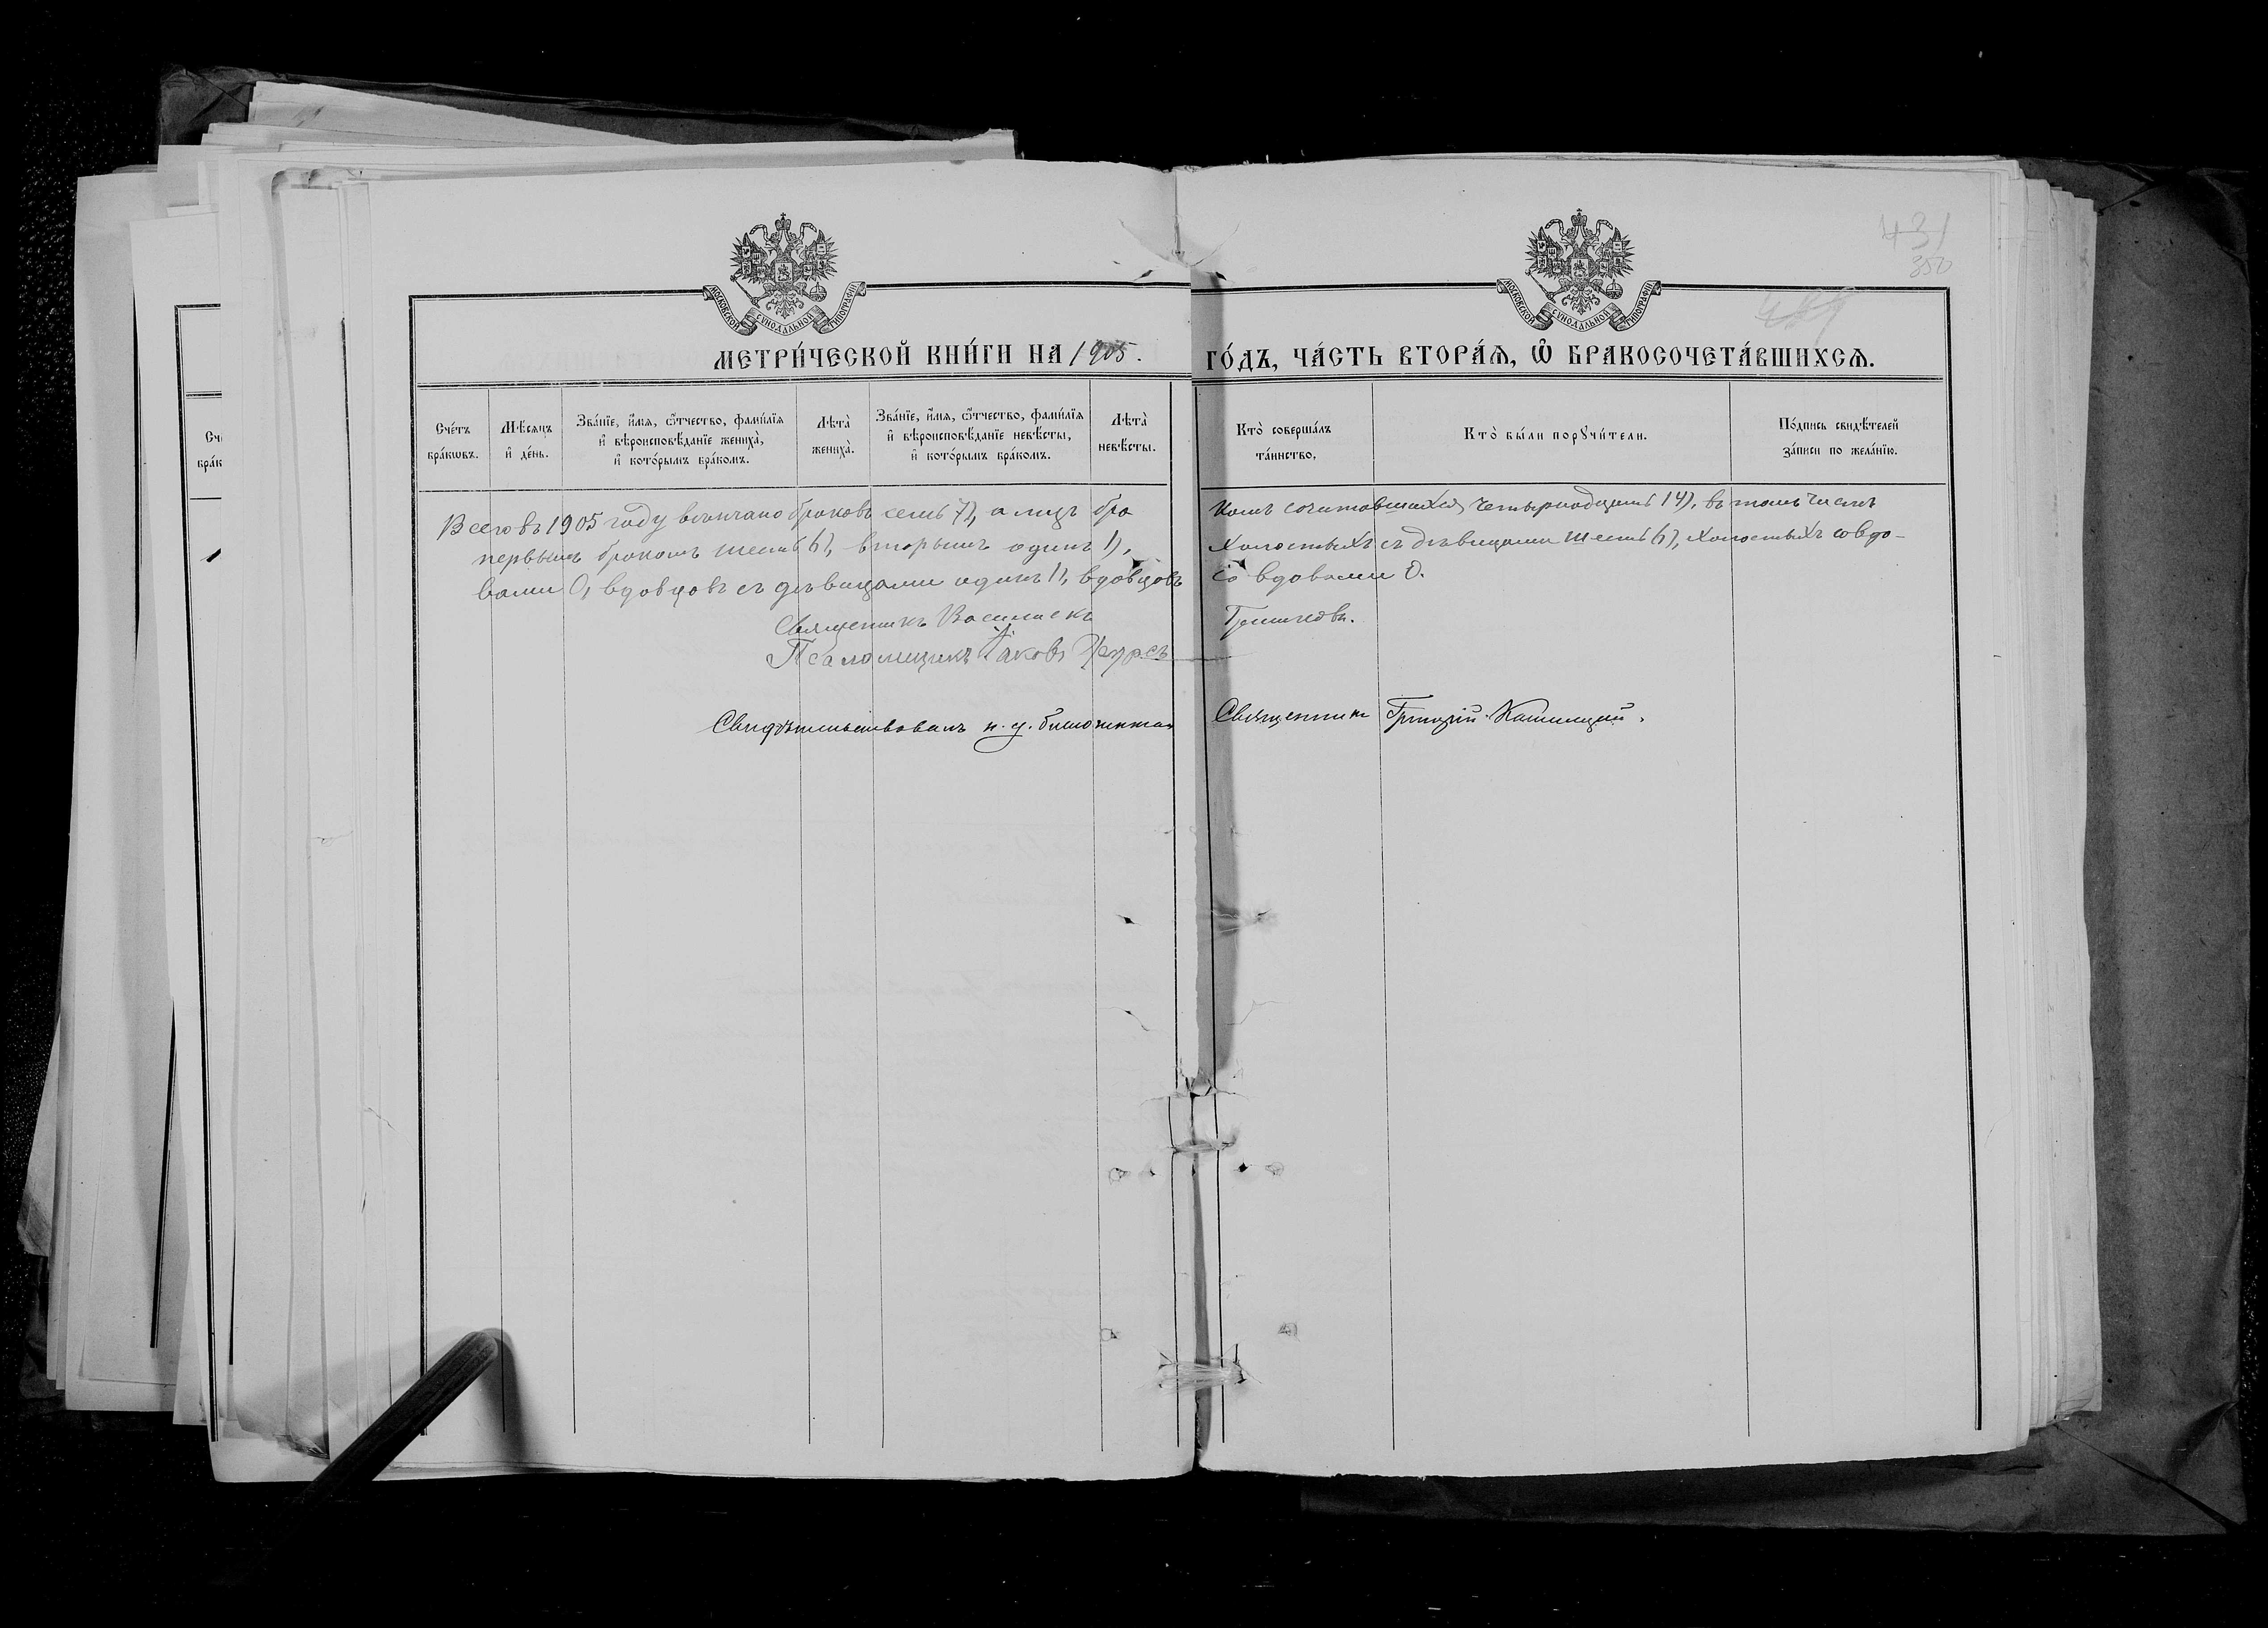 431
350
МОСКОВСКОЙ СѴНОДАЛЬНОЙ ТИПОГРАФІИ
МОСКОВСКОЙ СѴНОДАЛЬНОЙ ТИПОГРАФІИ
МЕТРИ́ЧЕСКОЙ КНИ́ГИ НА 1905. ГО́ДЪ, ЧА́СТЬ ВТОРА́Ѧ, Ѽ БРАКОСОЧЕТА́ВШИХСѦ.
Сче́тъ бра́кѡвъ.
Мѣ́сяцъ и҆ де́нь.
Зва́нїе, и҆́мя, ѻ҆́тчество, фами́лїя и҆ вѣроисповѣ́данїе жениха̀, и҆ кото́рымъ бра́комъ.
Лѣта̀ жениха̀.
Зва́нїе, и҆́мя, ѻ҆́тчество, фами́лїя и҆ вѣроисповѣ́данїе невѣ́сты, и҆ кото́рымъ бра́комъ.
Лѣта̀ невѣ́сты.
Кто̀ соверша́лъ та́инство.
Кто̀ бы́ли порꙋчи́тели.
По́дпись свидѣ́телей за́писи по жела́нїю.
Всего въ 1905 году вѣнчано браковъ семь 7), а лицъ бракомъ сочитавшихся четырнадцать 14), въ томъ числѣ
первымъ бракомъ шесть 6), вторымъ одинъ 1), холостыхъ съ дѣвицами шесть 6), холостыхъ со вдо-
вами 0, вдовцовъ съ дѣвицами одинъ 1), вдовцовъ со вдовами 0.
Священникъ Василискъ Гришковъ.
Псаломщикъ Іаковъ
Свидѣтельствовалъ и. д. благочиннаго Священникъ Григорій